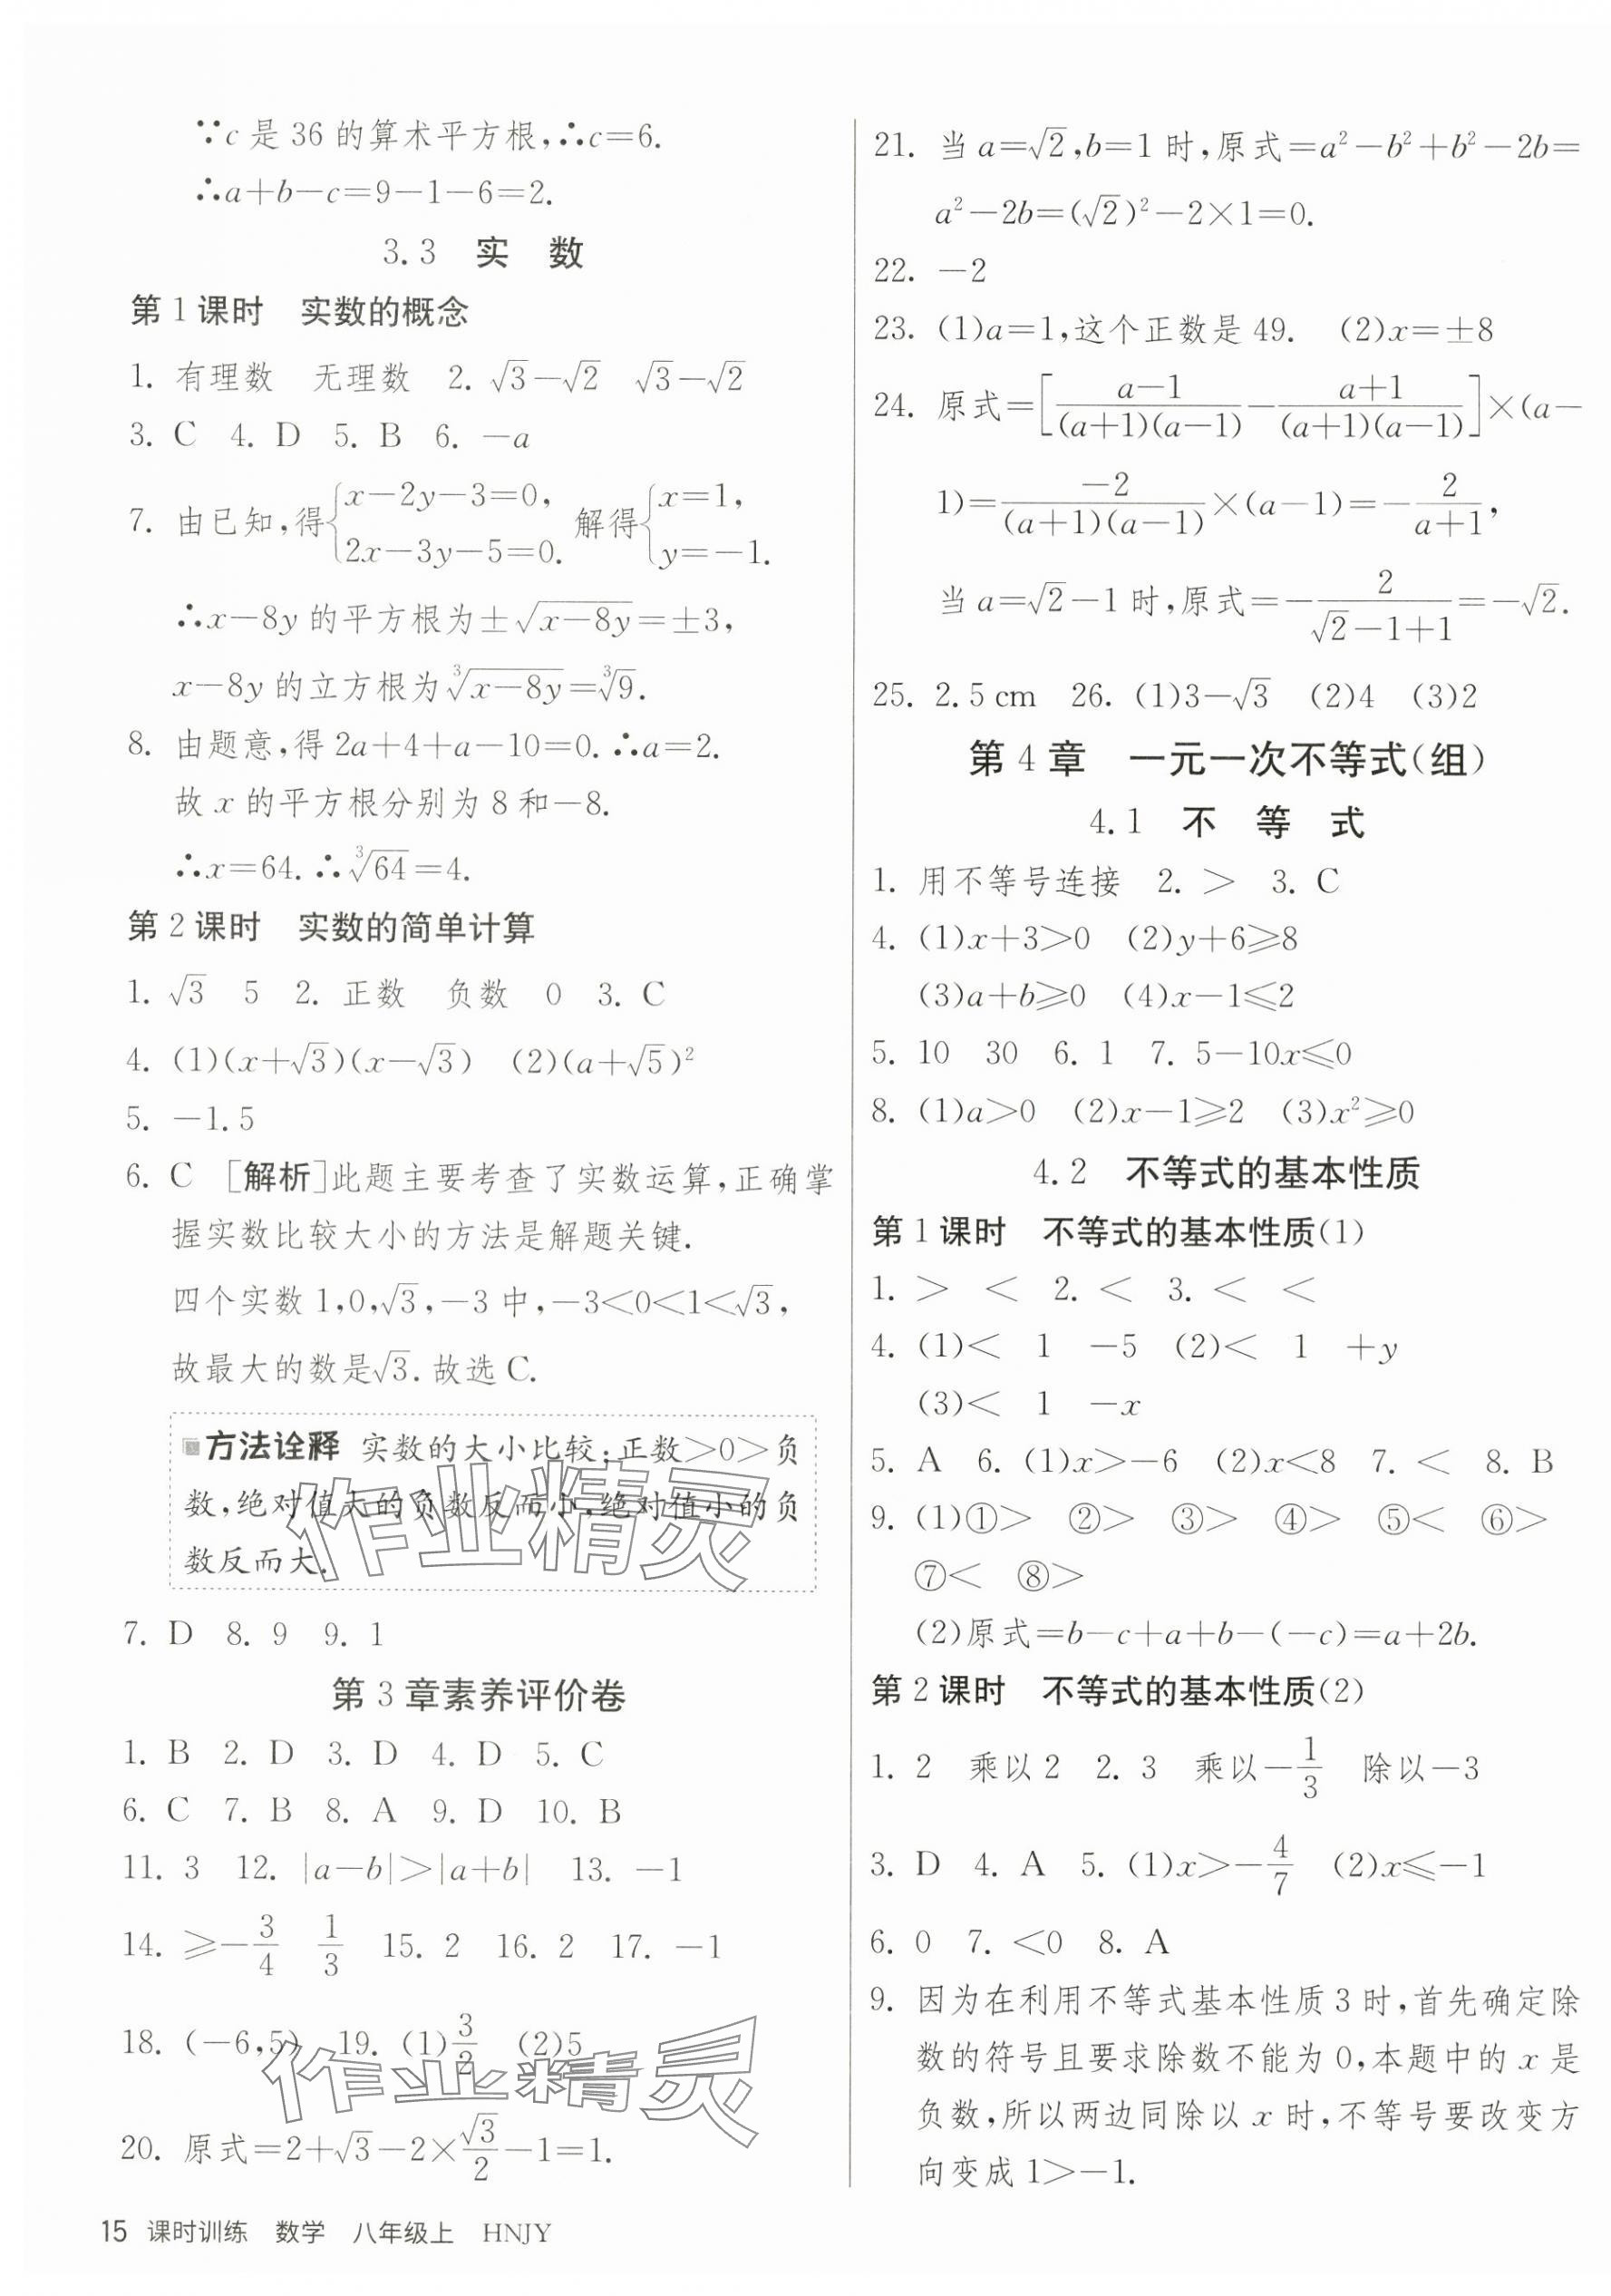 ∵c是36的算术平方根,∴c=6.
∴a+b-c=9-1-6=2.
3.3 实 数
第1课时 实数的概念
1. 有理数 无理数 2. √3-√2 √3-√2
3. C 4. D 5. B 6. -a
7. 由已知,得{x-2y-3=0, 2x-3y-5=0. 解得{x=1, y=-1.
∴x-8y的平方根为±√(x-8y)=±3,
x-8y的立方根为∛(x-8y)=∛9.
8. 由题意,得2a+4+a-10=0.∴a=2.
故x的平方根分别为8和-8.
∴x=64.∴∛64=4.
第2课时 实数的简单计算
1. √3 5 2. 正数 负数 0 3. C
4. (1)(x+√3)(x-√3) (2)(a+√5)²
5. -1.5
6. C [解析]此题主要考查了实数运算,正确掌
握实数比较大小的方法是解题关键.
四个实数1,0,√3,-3中,-3<0<1<√3,
故最大的数是√3.故选C.
方法诠释 实数的大小比较:正数>0>负
数,绝对值大的负数反而小,绝对值小的负
数反而大.
作业精灵
7. D 8. 9 9. 1
第3章素养评价卷
1. B 2. D 3. D 4. D 5. C
6. C 7. B 8. A 9. D 10. B
11. 3 12. |a-b|>|a+b| 13. -1
14. ≥-3/4 1/3 15. 2 16. 2 17. -1
18. (-6,5) 19. (1)3/2 (2)5
作业精灵
20. 原式=2+√3-2×√3/2-1=1.
15 课时训练 数学 八年级上 HNJY
21. 当a=√2,b=1时,原式=a²-b²+b²-2b=
a²-2b=(√2)²-2×1=0.
22. -2
23. (1)a=1,这个正数是49. (2)x=±8
24. 原式=[(a-1)/((a+1)(a-1))-(a+1)/((a+1)(a-1))]×(a-
1)=-2/((a+1)(a-1))×(a-1)=-2/(a+1),
当a=√2-1时,原式=-2/(√2-1+1)=-√2.
25. 2.5 cm 26. (1)3-√3 (2)4 (3)2
第4章 一元一次不等式(组)
4.1 不 等 式
1. 用不等号连接 2. > 3. C
4. (1)x+3>0 (2)y+6⩾8
(3)a+b⩾0 (4)x-1⩽2
5. 10 30 6. 1 7. 5-10x⩽0
8. (1)a>0 (2)x-1⩾2 (3)x²⩾0
4.2 不等式的基本性质
第1课时 不等式的基本性质(1)
1. > < 2. < 3. < <
4. (1)< 1 -5 (2)< 1 +y
(3)< 1 -x
5. A 6. (1)x>-6 (2)x<8 7. < 8. B
9. (1)①> ②> ③> ④> ⑤< ⑥>
⑦< ⑧>
(2)原式=b-c+a+b-(-c)=a+2b.
第2课时 不等式的基本性质(2)
1. 2 乘以2 2. 3 乘以-1/3 除以-3
3. D 4. A 5. (1)x>-4/7 (2)x⩽-1
6. 0 7. <0 8. A
9. 因为在利用不等式基本性质3时,首先确定除
数的符号且要求除数不能为0,本题中的x是
负数,所以两边同除以x时,不等号要改变方
向变成1>-1.